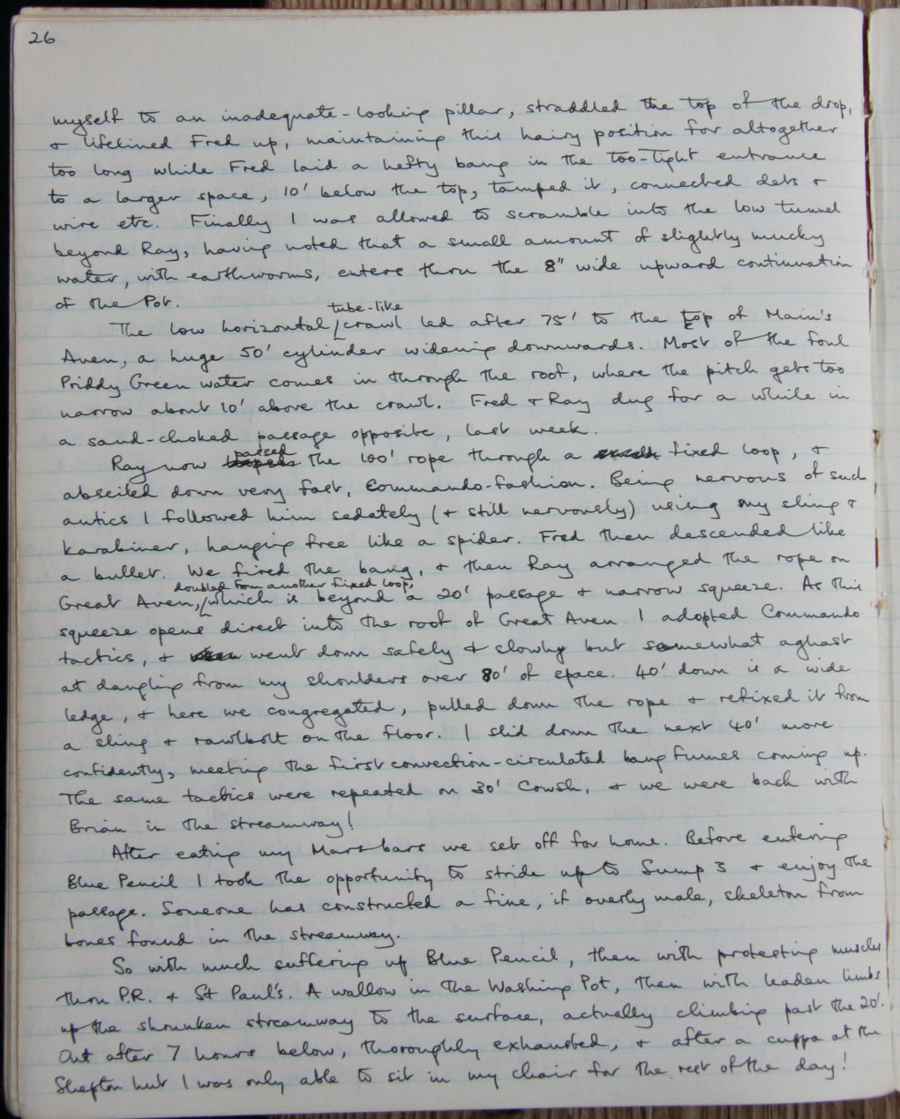 26
myself to an inadequate-looking pillar, straddled the top of the drop,
& lifelined Fred up, maintaining this hairy position for altogether
too long while Fred laid a hefty bang in the too-tight entrance
to a larger space, 10' below the top, tamped it, connected dets &
wire etc. Finally I was allowed to scramble into the low tunnel
beyond Ray, having noted that a small amount of slightly mucky
water, with earthworms, enters thru the 8" wide upward continuation
of the Pot.
tube-like
The low horizontal crawl led after 75' to the top of Main's
Aven, a huge 50' cylinder widening downwards. Most of the foul
Priddy Green water comes in through the roof, where the pitch gets too
narrow about 10' above the crawl. Fred & Ray dug for a while in
a sand-choked passage opposite, last week.
passed
Ray now the 100' rope through a fixed loop, &
abseiled down very fast, Commando-fashion. Being nervous of such
antics I followed him sedately (& still nervously) using my sling &
karabiner, hanging free like a spider. Fred then descended like
a bullet. We fired the bang, & then Ray arranged the rope on
doubled from another fixed loop,
Great Aven, which is beyond a 20' passage & narrow squeeze. As this
squeeze opens direct into the roof of Great Aven I adopted Commando
tactics, & went down safely & slowly but somewhat aghast
at dangling from my shoulders over 80' of space. 40' down is a wide
ledge, & here we congregated, pulled down the rope & refixed it from
a sling & rawlbolt on the floor. I slid down the next 40' more
confidently, meeting the first convection-circulated bang fumes coming up.
The same tactics were repeated on 30' Cowsh, & we were back with
Brian in the streamway!
After eating my Mars bars we set off for home. Before entering
Blue Pencil I took the opportunity to stride up to Sump 3 & enjoy the
passage. Someone has constructed a fine, if overly male, skeleton from
bones found in the streamway.
So with much suffering up Blue Pencil, then with protesting muscles
thru P.R. & St Paul's. A wallow in the Washing Pot, then with leaden limbs
up the shrunken streamway to the surface, actually climbing past the 20'.
Out after 7 hours below, thoroughly exhausted, & after a cuppa at the
Shepton hut I was only able to sit in my chair for the rest of the day!